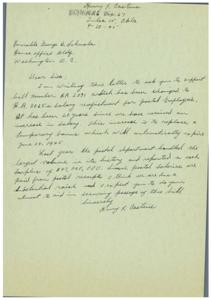 Henry F. Eastine
Tulsa 15, Okla
4-20-45
Honorable George B. Schwabe
House office Bldg.
Washington D. C.
Dear Sir:
I am writing this letter to ask you to support
bill number HR 2071 which has been changed to
H.R. 3035 a salary readjustment for postal Employees.
It has been 20 years since we have received an
increase in salary. This increase is to replace a
temporary bonus which will automatically expire
June 30, 1945
Last year the postal department handled the
largest volume in its history and reported a cash
surplus of
Since postal salaries are
paid from postal receipts I think we are due a
substantial raise and I expect you to do your
utmost to aid in securing passage of this bill
Sincerely
Henry F. Eastine